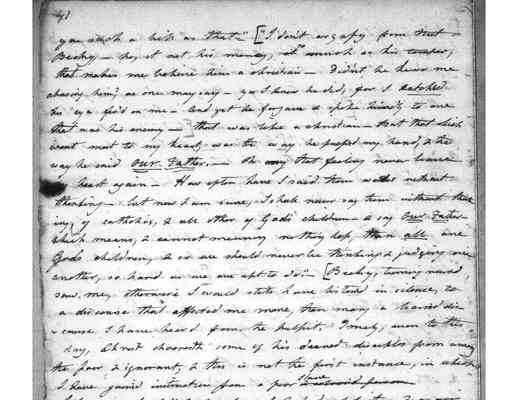 41
gave such a bit as that" ["I don't argufy from that –
Becky – no, it not his money, it's much as his temper,
that makes me believe him a christian – Didn't he hear me
abusing him, as one may say – ye I know he did, for I watched
his eye fix'd on me – And yet he forgave & spoke kindly to me
that was his enemy – that was like a christian – But that which
went most to my heart, was the way he pressed my hand, & the
way he said Our Father. – Oh may that feeling never leave
heart again – How often have I said them words without
thinking – but now I am sure, I shall never say them without think
ing of catholics, & all other of God's children – & say Our Father
which means, & cannot meaning nothing less, than all are
Gods children, & so we should never be thinking & judging one
another, so hard as we are apt to do" – [Becky, turning round,
saw me, otherwise I would still have listened in silence, to
a discourse that afforded me more, than many a learned dis
-course I have heard from the pulpit. Truly, even to this
day, Christ chooseth some of his dearest disciples from among
the poor, & ignorant, & this is not the first instance, in which
I have gained instruction from a poor